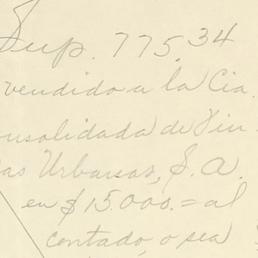 Sup. 775.34
vendido a la Cia.
onsolidada de Fin
as Urbanas, S.A.
en $15.000.= al
contado, o sea